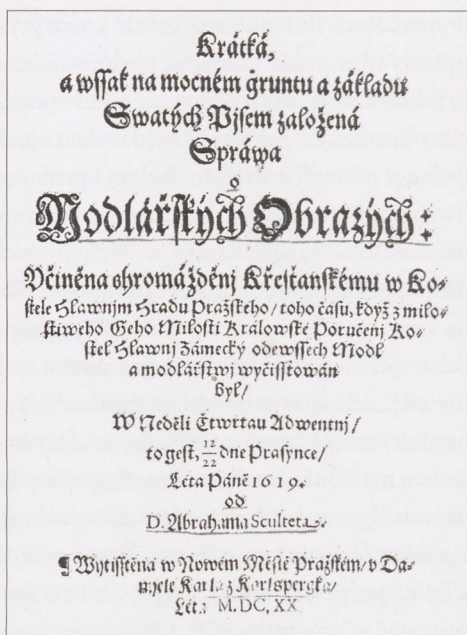 Krátká,
a wssak na mocném gruntu a základu
Swatých Pjsem založená
Spráwa
o
Modlářských Obrazých:
Včiněna shromážděnj Křestanskému w Ko-
stele Hlawnjm Hradu Pražského/ toho času, když z milo-
stiweho Geho Milosti Králowské Poručenj Ko-
stel Hlawnj Zámecký odewssech Modl
a modlářstwj wyčisstowán
byl/
W Neděli Čtwrtau Adwentnj/
to gest, 12/22 dne Prasynce/
Léta Páně 1619.
od
D. Abrahama Sculteta.
¶ Wytisstěna w Nowém Městě Pražském/ v Da-
nyele Karla z Karlsperçka/
Lét: M.DC.XX.